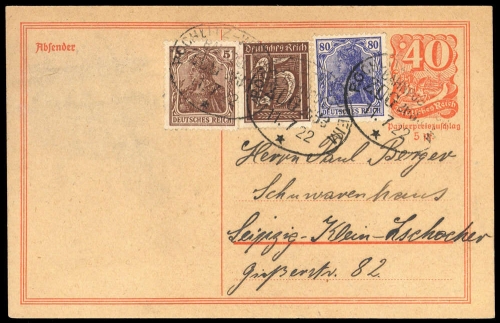 Absender
5
DEUTSCHES REICH
Deutsches Reich
25
80 80
DEUTSCHES REICH
40
Deutsches Reich
Papierpreiszuschlag
5 Pf
7 22
Herrn Paul Berger
Schuwarenhaus
Leipzig-Klein-Zschocher
Gießerstr. 82.